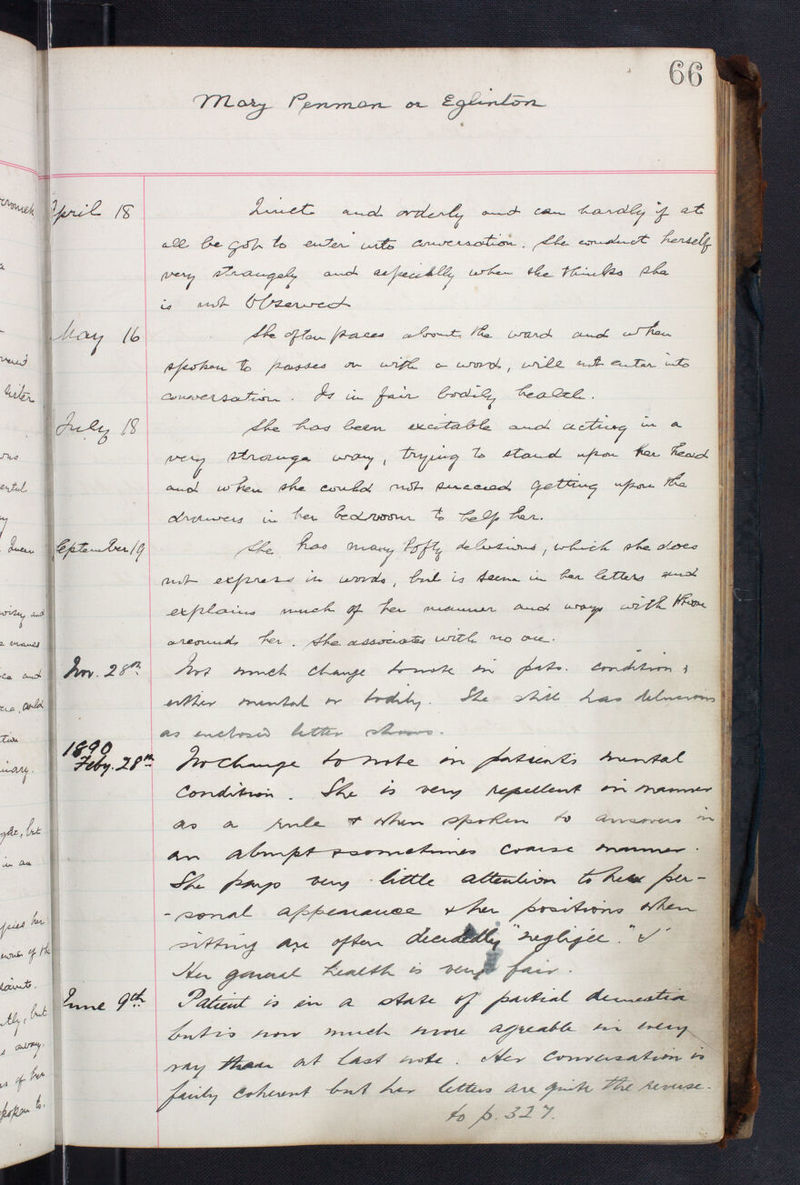 66
Mary Penman or Eglinton
April 18 Quiet and orderly and can hardly if at
all be got to enter into conversation. She conduct herself
very strangely and especially when she thinks she
is not observed
May 16 She often paces about the ward and when
spoken to passes on with a word, will not enter into
conversation. Is in fair bodily health.
July 18 She has been excitable and acting in a
very strange way, trying to stand upon her head
and when she could not succeed getting upon the
drawers in her bedroom to help her.
September 19 She has many lofty delusions, which she does
not express in words, but is seen in her letters and
explains much of her manner and ways with those
around her. She associates with no one.
Nov. 28th Not much change to note in pats. condition,
either mental or bodily. She still has delusions
as enclosed letter shows.
1890
Feby. 28th No change to note in patient's mental
condition. She is very repellent in manner
as a rule & when spoken to answers in
an abrupt & sometimes coarse manner.
She pays very little attention to her per-
-sonal appearance & her positions when
sitting are often decidedly "negligée."
Her general health is very fair.
June 9th Patient is in a state of partial dementia
but is now much more agreeable in every
way than at last note. Her conversation is
fairly coherent but her letters are quite the reverse.
to p. 327.